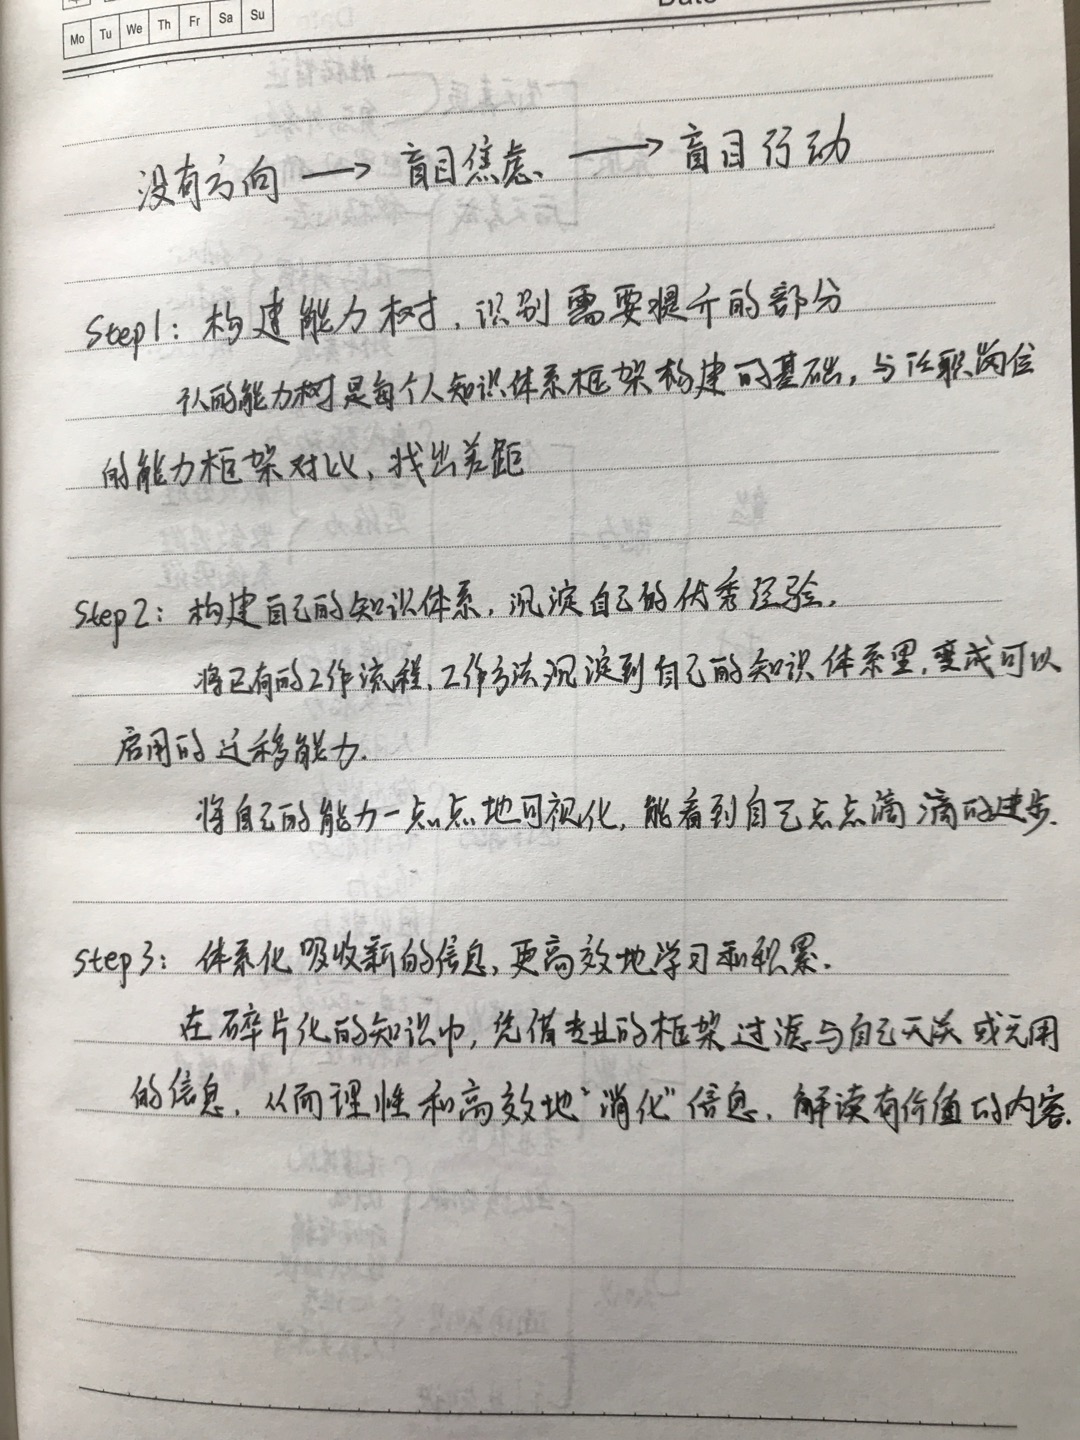 Date
Mo Tu We Th Fr Sa Su
没有方向 → 盲目焦虑 → 盲目行动
Step1: 构建能力树，识别需要提升的部分
认的能力树是每个人知识体系框架构建的基础，与任职岗位
的能力框架对比，找出差距
Step2: 构建自己的知识体系，沉淀自己的优秀经验.
将已有的工作流程、工作方法沉淀到自己的知识体系里，变成可以
启用的迁移能力.
将自己的能力一点点地可视化，能看到自己点点滴滴的进步.
Step3: 体系化吸收新的信息，更高效地学习和积累.
在碎片化的知识中，凭借专业的框架过滤与自己无关或无用
的信息，从而理性和高效地“消化”信息，解读有价值的内容.